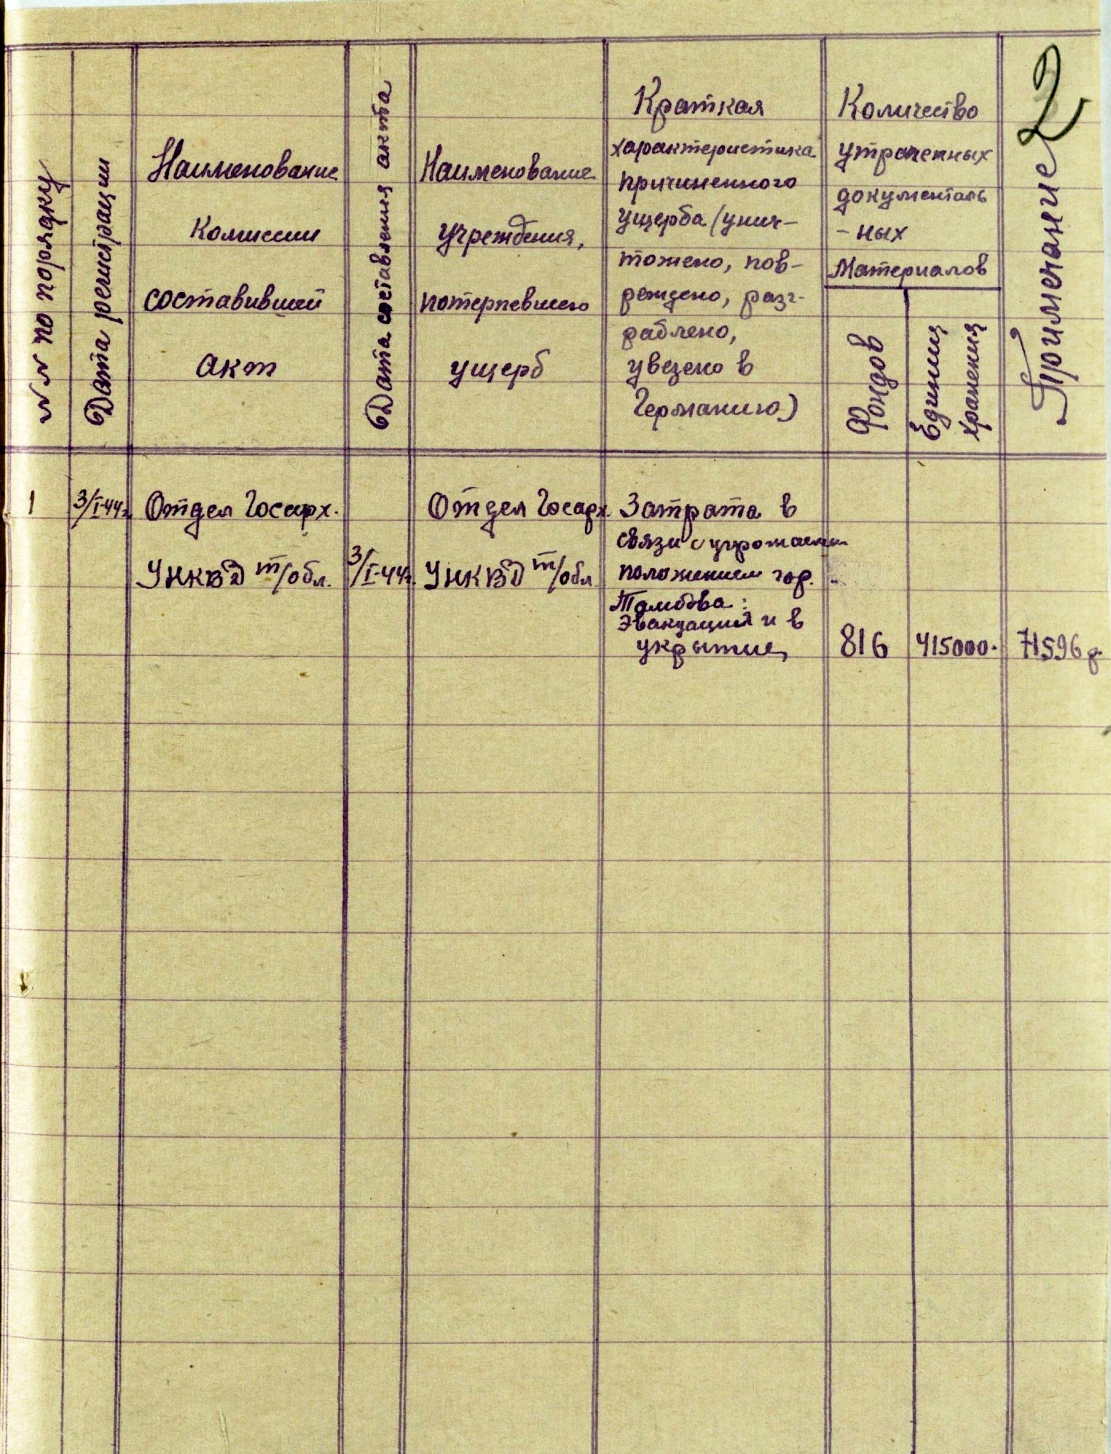 2
№№ по порядку
Дата регистрации
Наименование
комиссии
составившей
акт
Дата составления акта
Наименование
учреждения,
потерпевшего
ущерб
Краткая
характеристика
причиненного
ущерба (унич-
тожено, пов-
реждено, разг-
раблено,
увезено в
Германию)
Количество
утраченных
документаль
-ных
материалов
Фондов
Единиц
хранения
Примечание
1
3/I-44г.
Отдел Госарх.
УНКВД т/обл.
3/I-44г.
Отдел Госарх
УНКВД т/обл
Затрата в
связи с угрожаемым
положением гор.
Тамбова:
Эвакуация и в
укрытие,
816
415000.
71596 р.